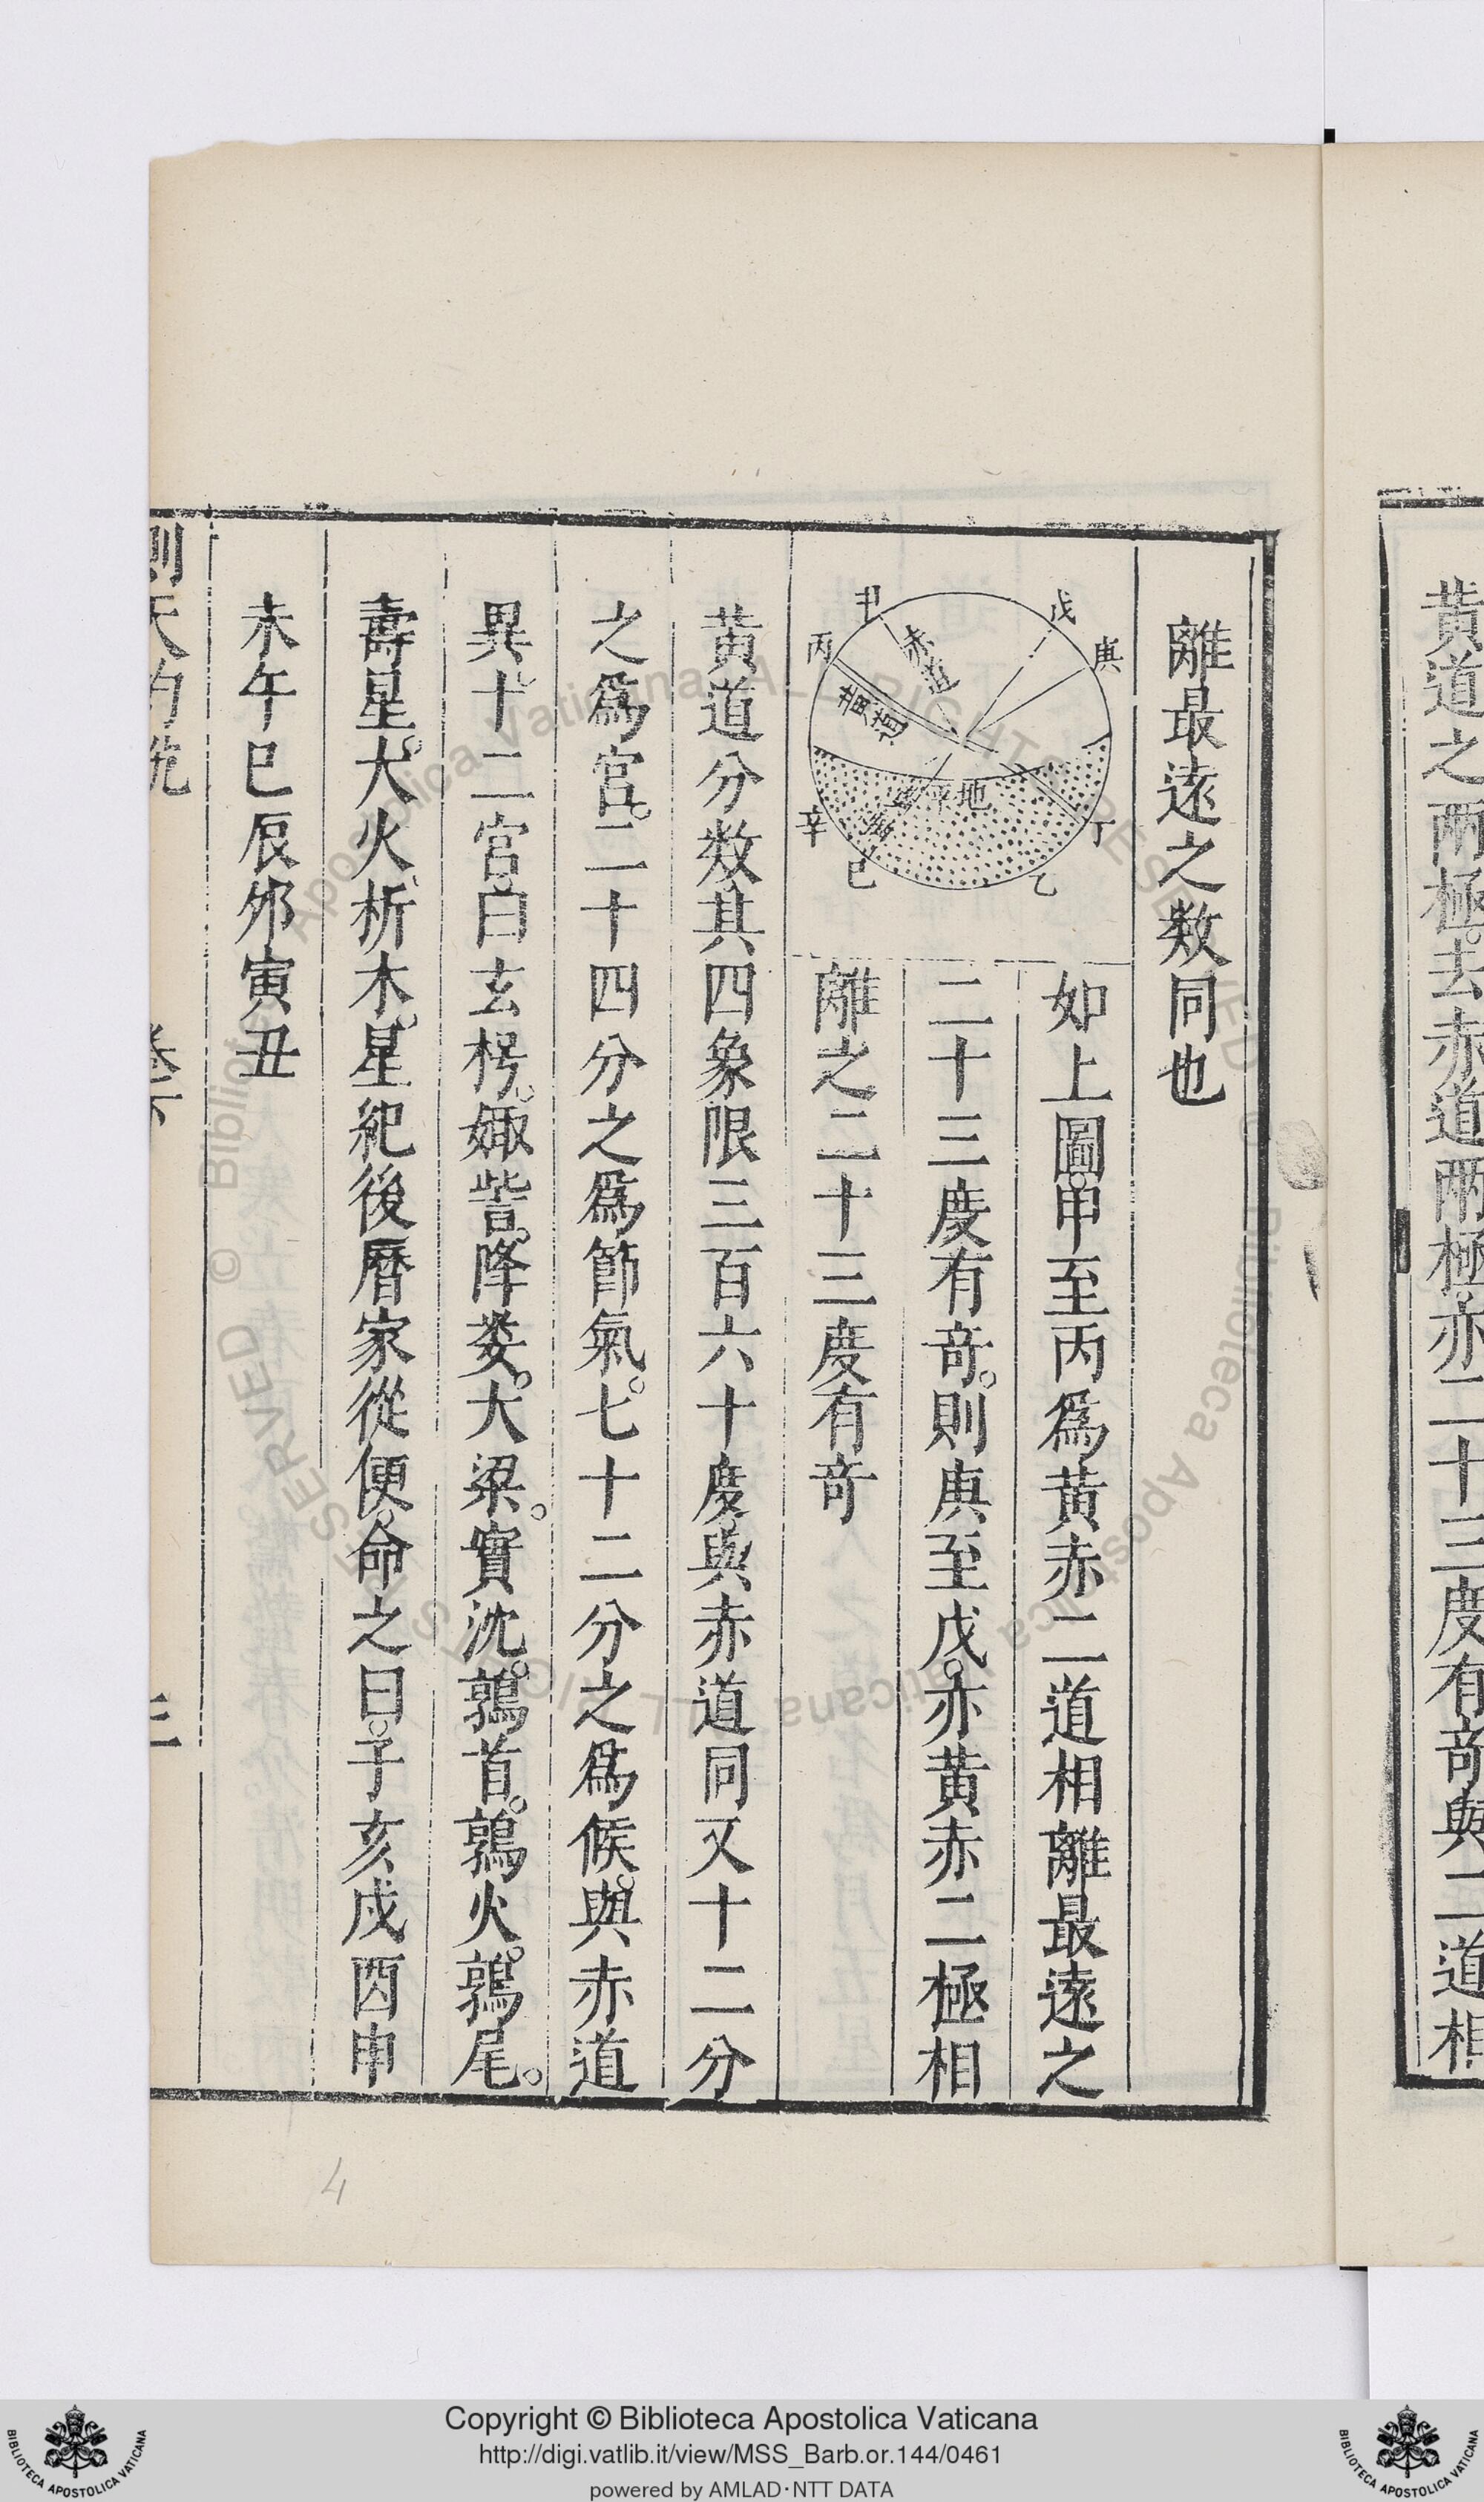 黄道之兩極。去赤道兩極。亦二十三度有竒與二道相
離最遠之数同也
甲
丙
戊
庚
赤道
黄道
地平
辛
己
乙
丁
如上圖。甲至丙爲黄赤二道相離最遠之
二十三度有竒。則庚至戊。亦黄赤二極相
離之二十三度有竒
黄道分数其四象限三百六十度。與赤道同又十二分
之爲宮。二十四分之爲節氣。七十二分之爲候。與赤道
異。十二宮。曰玄枵。娵訾。降婁。大梁。實沈。鶉首。鶉火。鶉尾。
壽星。大火。析木。星紀後曆家從便。命之曰。子亥戌酉申
未午巳辰夘寅丑
測天約說
卷下
三
4
Copyright © Biblioteca Apostolica Vaticana
http://digi.vatlib.it/view/MSS_Barb.or.144/0461
powered by AMLAD·NTT DATA
BIBLIOTECA APOSTOLICA VATICANA
BIBLIOTECA APOSTOLICA VATICANA